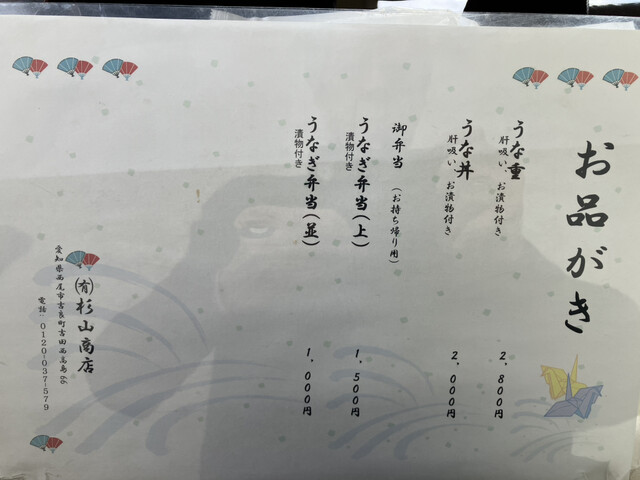 お品がき
うな重
肝吸い、お漬物付き
2,800円
うな丼
肝吸い、お漬物付き
2,000円
御弁当 (お持ち帰り用)
うなぎ弁当(上)
漬物付き
1,500円
うなぎ弁当(並)
漬物付き
1,000円
(有)杉山商店
愛知県西尾市吉良町吉田西高島66
電話:0120-037-579